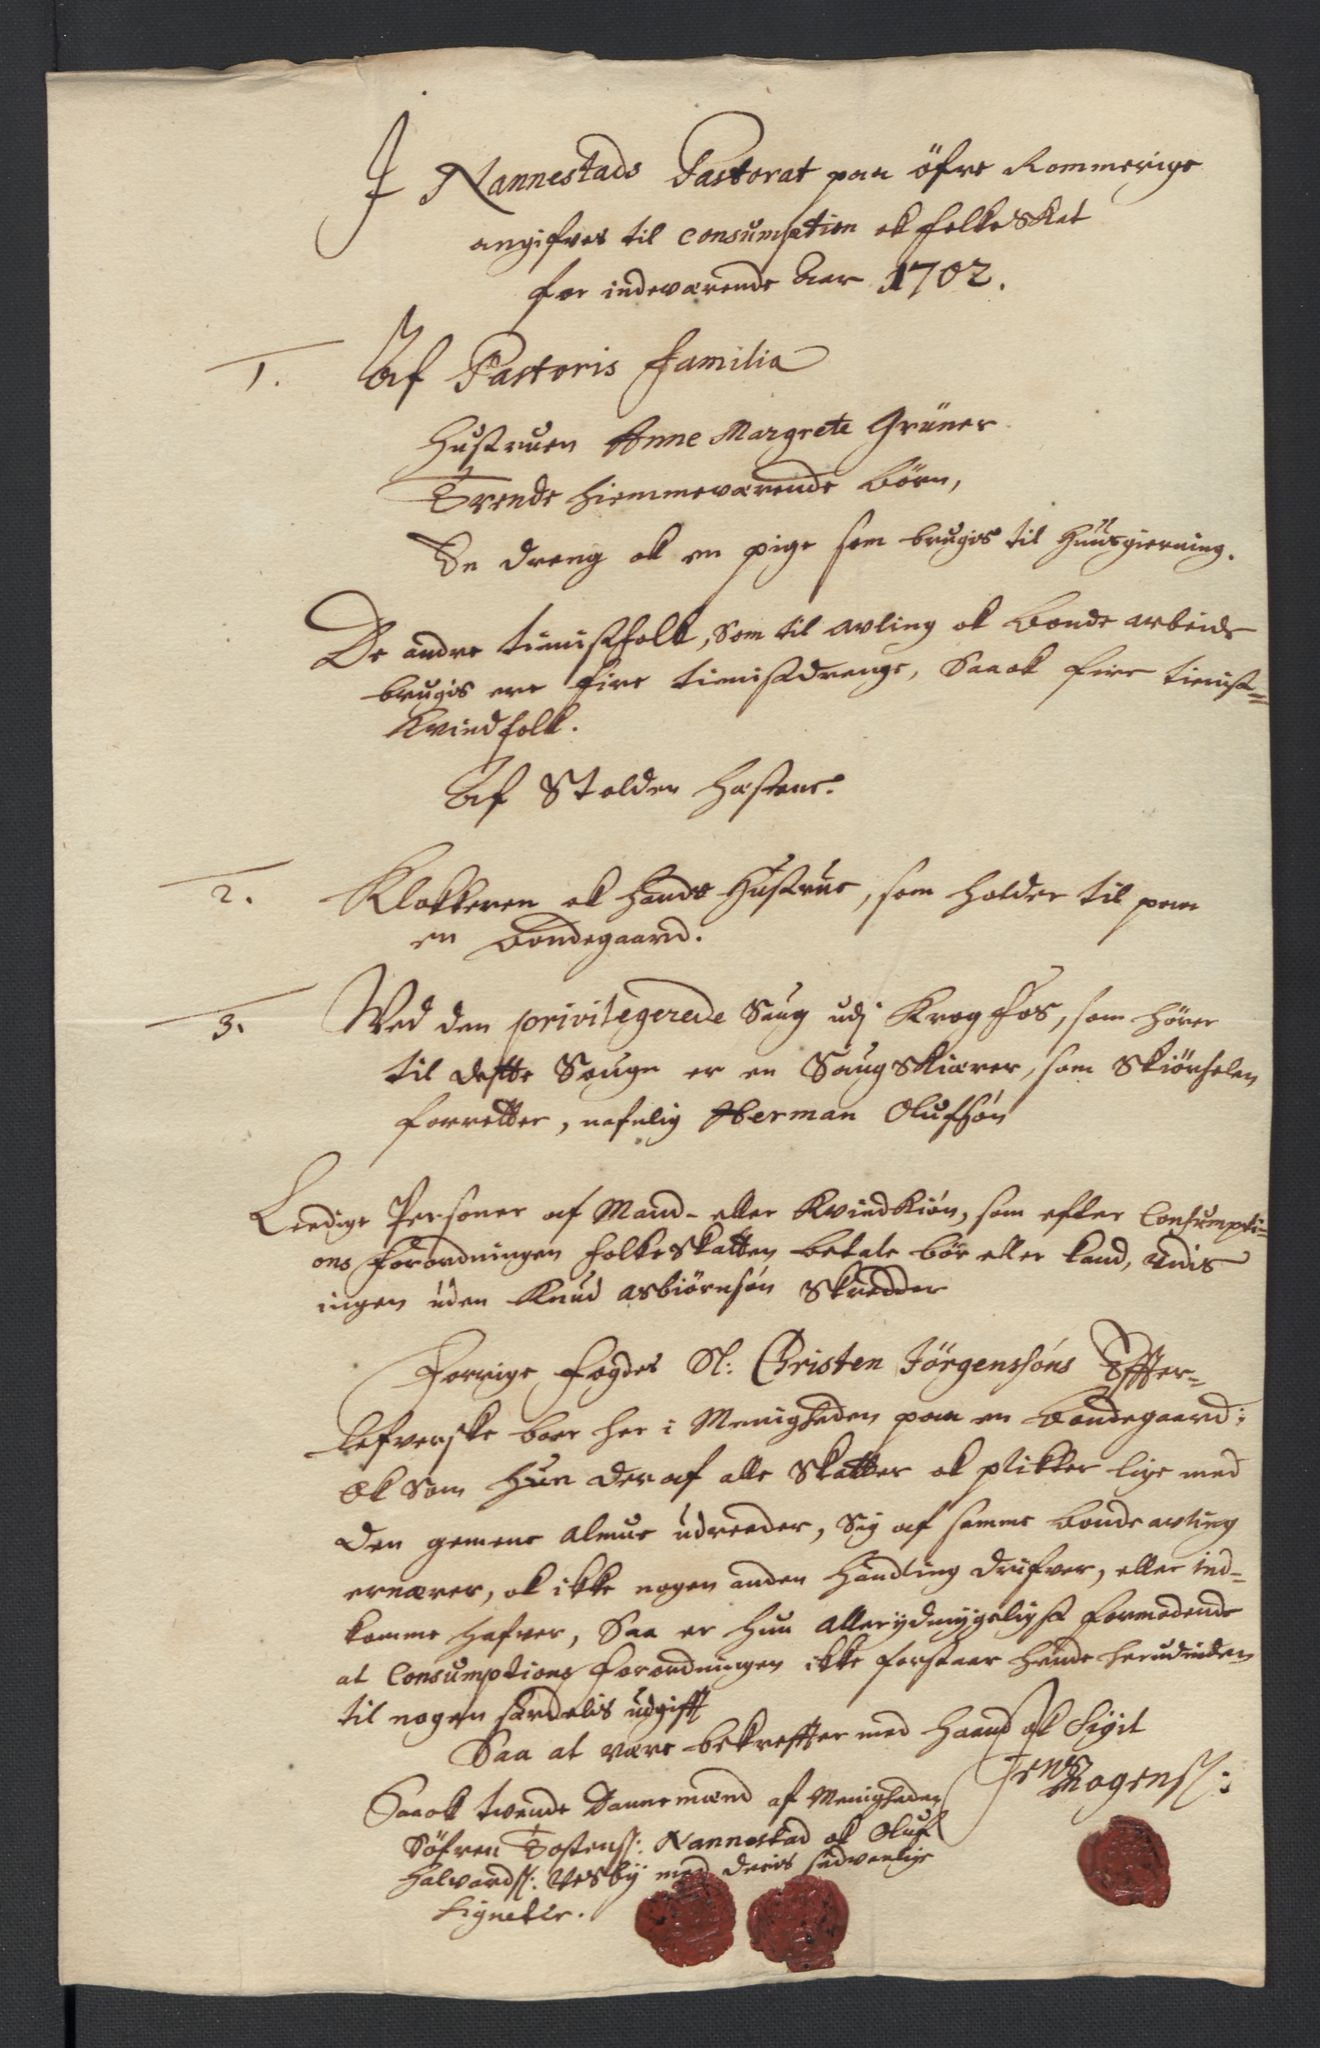 I Nannestads Pastorat paa öfre Rommerige
angifves til Consumption ok folke Skat
for indeværende Aar 1702.
1. Af Pastoris Familia
Hustruen Anne Margrete Grüner
Trende hiemmeværende börn,
En dreng ok en pige som brugis til Huusgierning.
De andre tienistfolk, som til avling ok bonde arbeide
brugis ere fire tienistdrenge, Saa ok fire tienist=
Kvindfolk.
Af Stolden hæstene.
2. Klokkeren ok hands Hustrue, som holder til paa
en bondegaard.
3. Ved den privilegerede Saug udj Krogfos, som hörer
til dette Sougn er en SaugSkiærer, som Skiörselen
forretter, nefnlig Herman Olufsön
Leedige Personer af Mand- eller Kvindkiön, som efter Consumpti=
ons Forordningen folkeSkatten betale bör eller kand, vides
ingen uden Knud Asbiörnsön Skredder
Forrige Fogdes Sl: Christen Jörgensöns Effter=
lefverske boer her i Menigheden paa en bondegaard;
Ok som Hun deraf alle Skatter ok plikter lige med
den gemene Almue udreeder, Sig af samme bonde avling
ernærer, ok ikke nogen anden handling drifver, eller ind=
komme hafver, Saa er hun allerydmygeligst formodende
at Consumptions Forordningen ikke forstaar hende herudinden
til nogen særdelis udgifft
Saa at være bekreffter med Haand ok Sigil
Jens Mogens:
Saa ok tvende Dannemænd af Menigheden
Söfren Tostens: Nannestad ok Oluf
Halvords: Vesby med deris sædvanlige
Signeter.